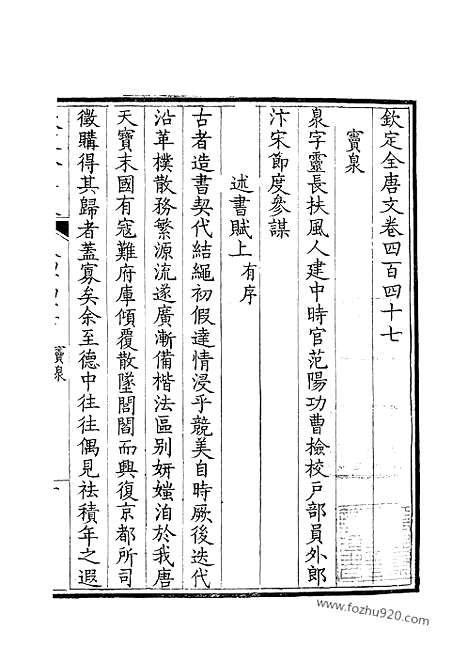 欽定全唐文卷四百四十七
竇臮
臮字靈長扶風人建中時官范陽功曹檢校戸部員外郎
汴宋節度參謀
述書賦上有序
古者造書契代結繩初假達情浸乎競美自時厥後迭代
沿革樸散務繁源流遂廣漸備楷法區别妍媸洎於我唐
天寶末國有寇難府庫傾覆散墜閭閻而興復京都所司
徵購得其歸者蓋寡矣余至德中往往偶見祛積年之遐
竇臮
www.fozhu920.com